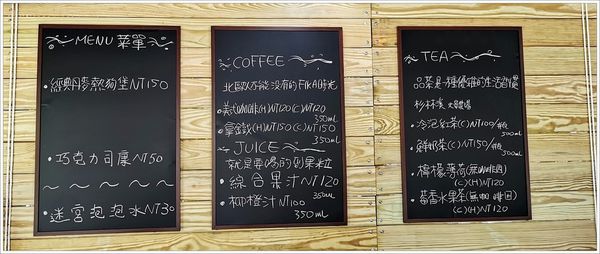 MENU 菜單
•經典脆熱狗堡NT150
•巧克力司康NT50
•迷宮泡泡水NT30
COFFEE
北歐人不能沒有的FIKA時光
•美式咖啡(H)NT120(C)NT120
350ml
•拿鐵(H)NT150(C)NT150
350ml
JUICE
就是要喝的到果粒
•綜合果汁NT120
350ml
•柳橙汁NT100
350ml
TEA
品茶是一種優雅的生活習慣
杉林溪
•冷泡紅茶(C)NT100/瓶
500ml
•鮮奶茶(C)NT150/瓶
500ml
•檸檬薄荷(無咖啡因)
(C)(H)NT120
•蕃香水果茶(無咖啡因)
(C)(H)NT120